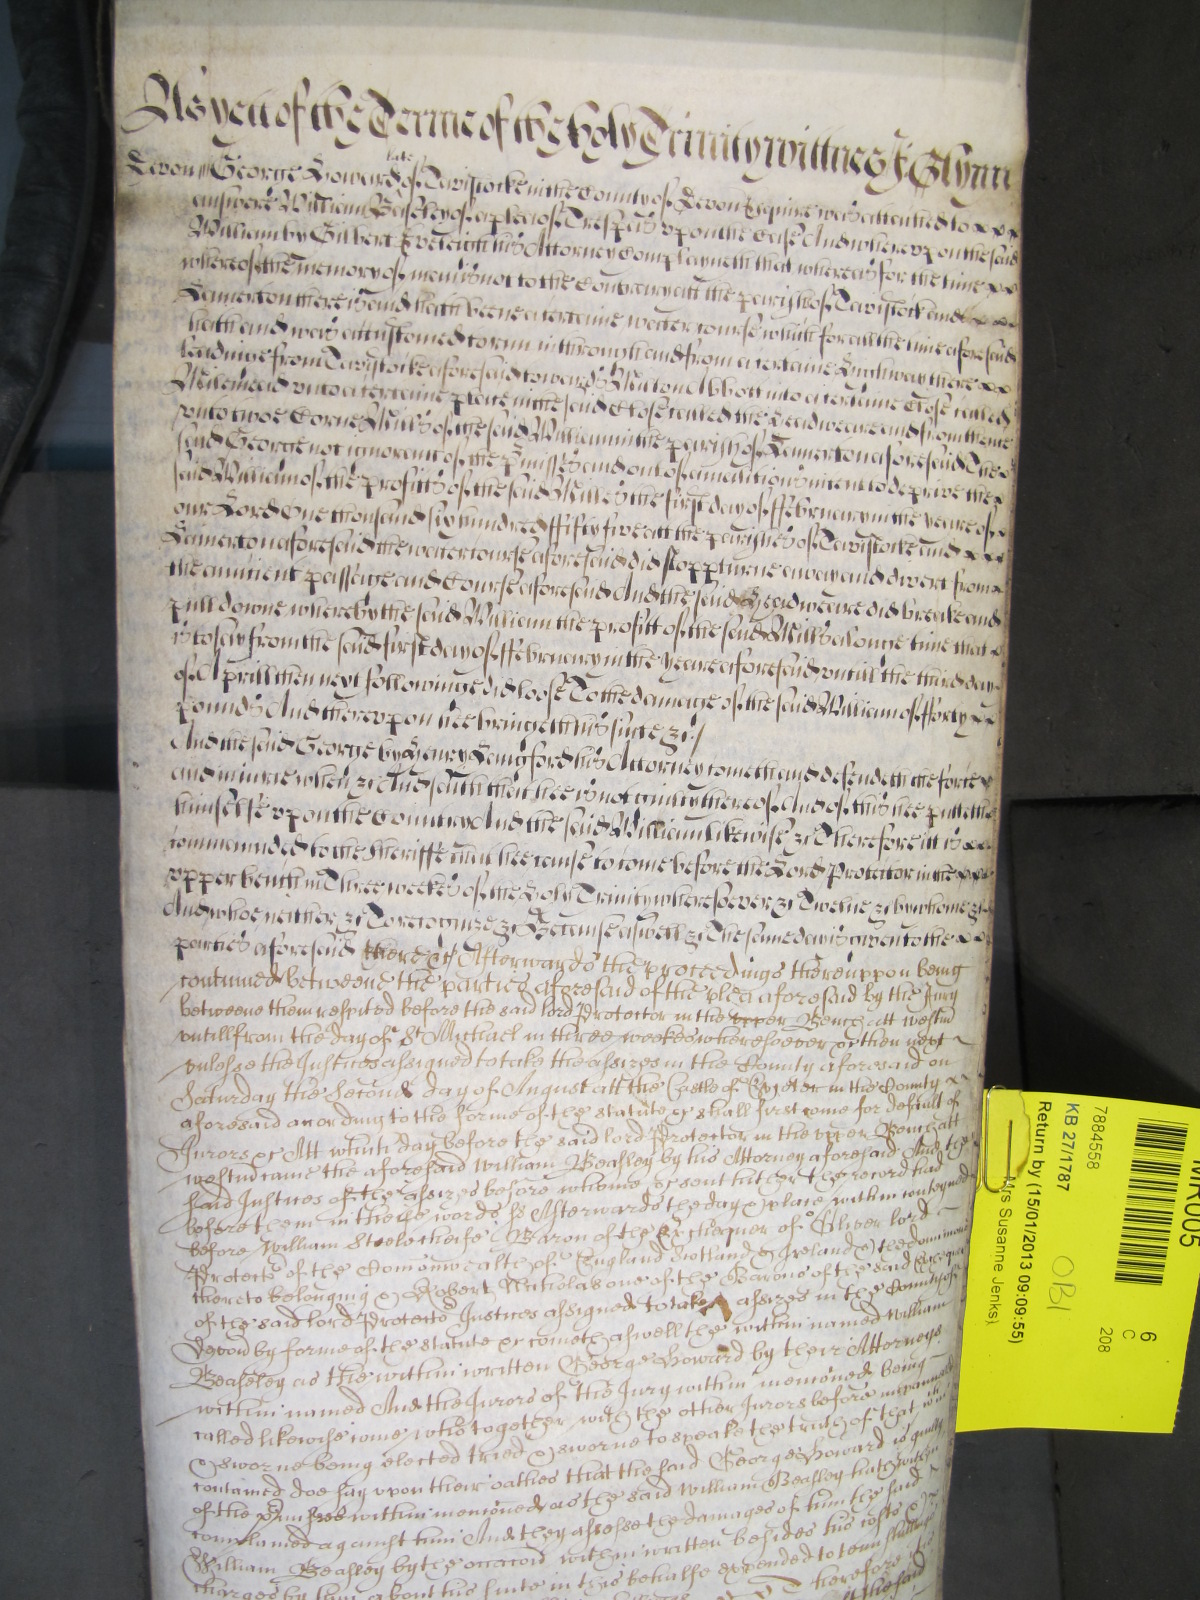 As yett of the Terme of the holy Trinity wittnes J Glynn
Devon George Howard late of Tavistocke in the County of Devon Esquire was attached to
answere William Beasley of a plea of Trespas upon the Case And whereupon the said
William by Gilbert his Attorney Complayneth that whereas for the time
whereof the memory of men is not to the Contrary att the parishes of Tavistock and
Lamerton there is and hath beene a certaine water course which for all the time aforesaid
hath and was accustomed to run in through and from a certaine highway there
leadinge from Tavistocke aforesaid towards Milton Abbott into a certaine Close called
Milemead unto a certaine place in the said Close called the headweare and from thence
unto twoe Corne Mills of the said William in the parish of Lamerton aforesaid The
said George not ignorant of the p'misses and out of a malitious intent to deprive the
said William of the profitts of the said Mills the first day of ffebruary in the yeare of
our Lord One thousand six hundred ffifty five att the parishes of Tavistocke and
Lamerton aforesaid the water course aforesaid did stopp turne away and divert from
the auntient passage and Course aforesaid And the said headweare did breake and
pull downe whereby the said William the profitt of the said Mills a longe time that
is to say from the said first day of ffebruary in the yeare aforesaid untill the third day
of Aprill then next followinge did loose To the damage of the said William of fforty
pounds And thereupon hee bringeth his suite &c
And the said George by Henry Langford his Attorney cometh and defendeth the force
and iniurie when &c And saith that hee is not guilty thereof And of this hee putteth
himselfe upon the Country And the said William likewise &c Therefore itt is
commanded to the Sheriffe that hee cause to come before the Lord Protector in the
upper bench in Three weekes of the holy Trinity wheresoever &c Twelve &c by whome &c
And whoe neither &c To recognize &c Because aswell &c The same day is given to the
parties aforesaid there &c Afterwards the proceedings thereuppon being
continued betweene the parties aforesaid of the plea aforesaid by the Jury
betweene them respited before the said lord Protector in the upper Bench att westm
untill from the day of St Michael in three weekes wheresoever &c then next
unlesse the Justices assigned to take the assizes in the County aforesaid on
Saturday the second day of August att the Castle of Exeter in the County
aforesaid according to the forme of the statute &c shall first come for default of
Jurors &c Att which day before the said lord Protector in the upper Bench att
westm came the aforesaid William Beasley by his Attorney aforesaid And the
said Justices of the assizes before whome &c sent hither there record had
before them in these words ss Afterwards the day & place within conteyned
before William Steele cheife Baron of the Exchequer of Oliver lord
Protector of the Comonwealth of England Scotland & Ireland & the dominions
thereto belonging & Robert Nicholas one of the Barons of the said Exchequer
of the said lord Protector Justices assigned to take assizes in the County of
Devon by forme of the statute &c cometh aswell the within named William
Beasley as the within written George Howard by their Attorneys
within named And the Jurors of the Jury within menconed being
called likewise come who together with the other Jurors before impannelled
& sworne being elected tried & sworne to speake the truth of that within
contained doe say upon their oathes that the said George Howard is guilty
of the p'misses within menconed as the said William Beasley hath within
complained against him And they assesse the damages of him the said
William Beasley by the occacon within written besides his costs &
charges by him about his suite in this behalfe expended to tenn shillings
Therefore
the said
MR005
6
C
208
7884558
KB 27/1787
OBI
Return by (15/01/2013 09:09:55)
Mrs Susanne Jenks)